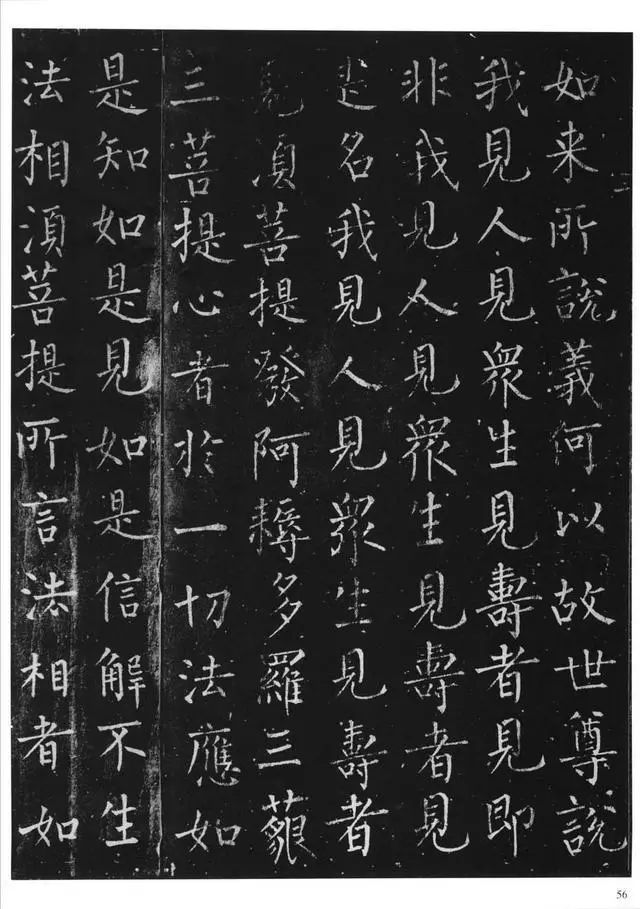 如来所說義何以故世尊說
我見人見衆生見壽者見即
非我見人見衆生見壽者見
是名我見人見衆生見壽者
見須菩提發阿耨多羅三藐
三菩提心者於一切法應如
是知如是見如是信解不生
法相須菩提所言法相者如
56